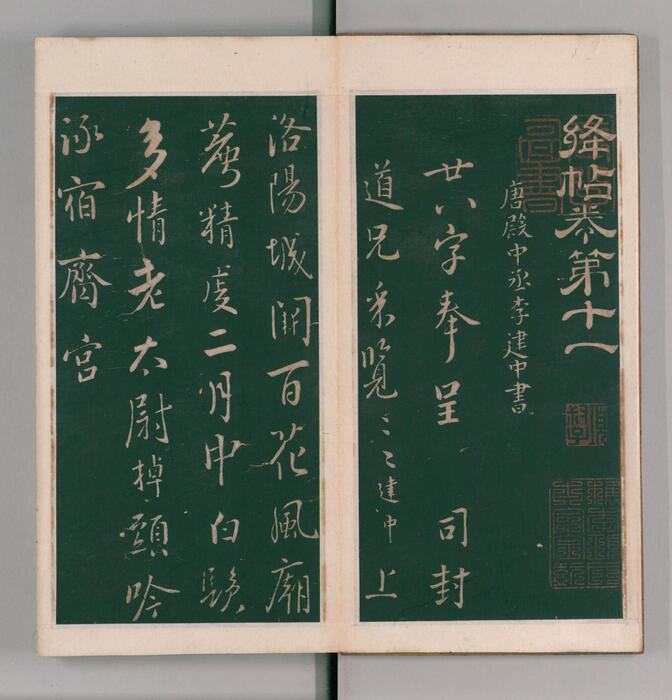 絳帖卷第十一
唐殿中丞李建中書
廿八字奉呈 司封
道兄采覽〻〻建中上
洛陽城闕百花風廟
蕚精虔二月中白鬚
多情老太尉掉頭吟
詠宿齋宮